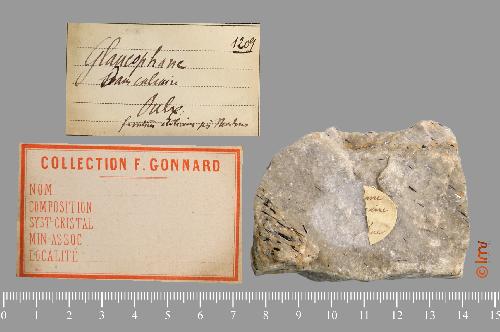 1209
Glaucophane
dans calcaire
COLLECTION F. GONNARD
NOM
COMPOSITION
SYST-CRISTAL
MIN-ASSOC
LOCALITÉ
0 1 2 3 4 5 6 7 8 9 10 11 12 13 14 15